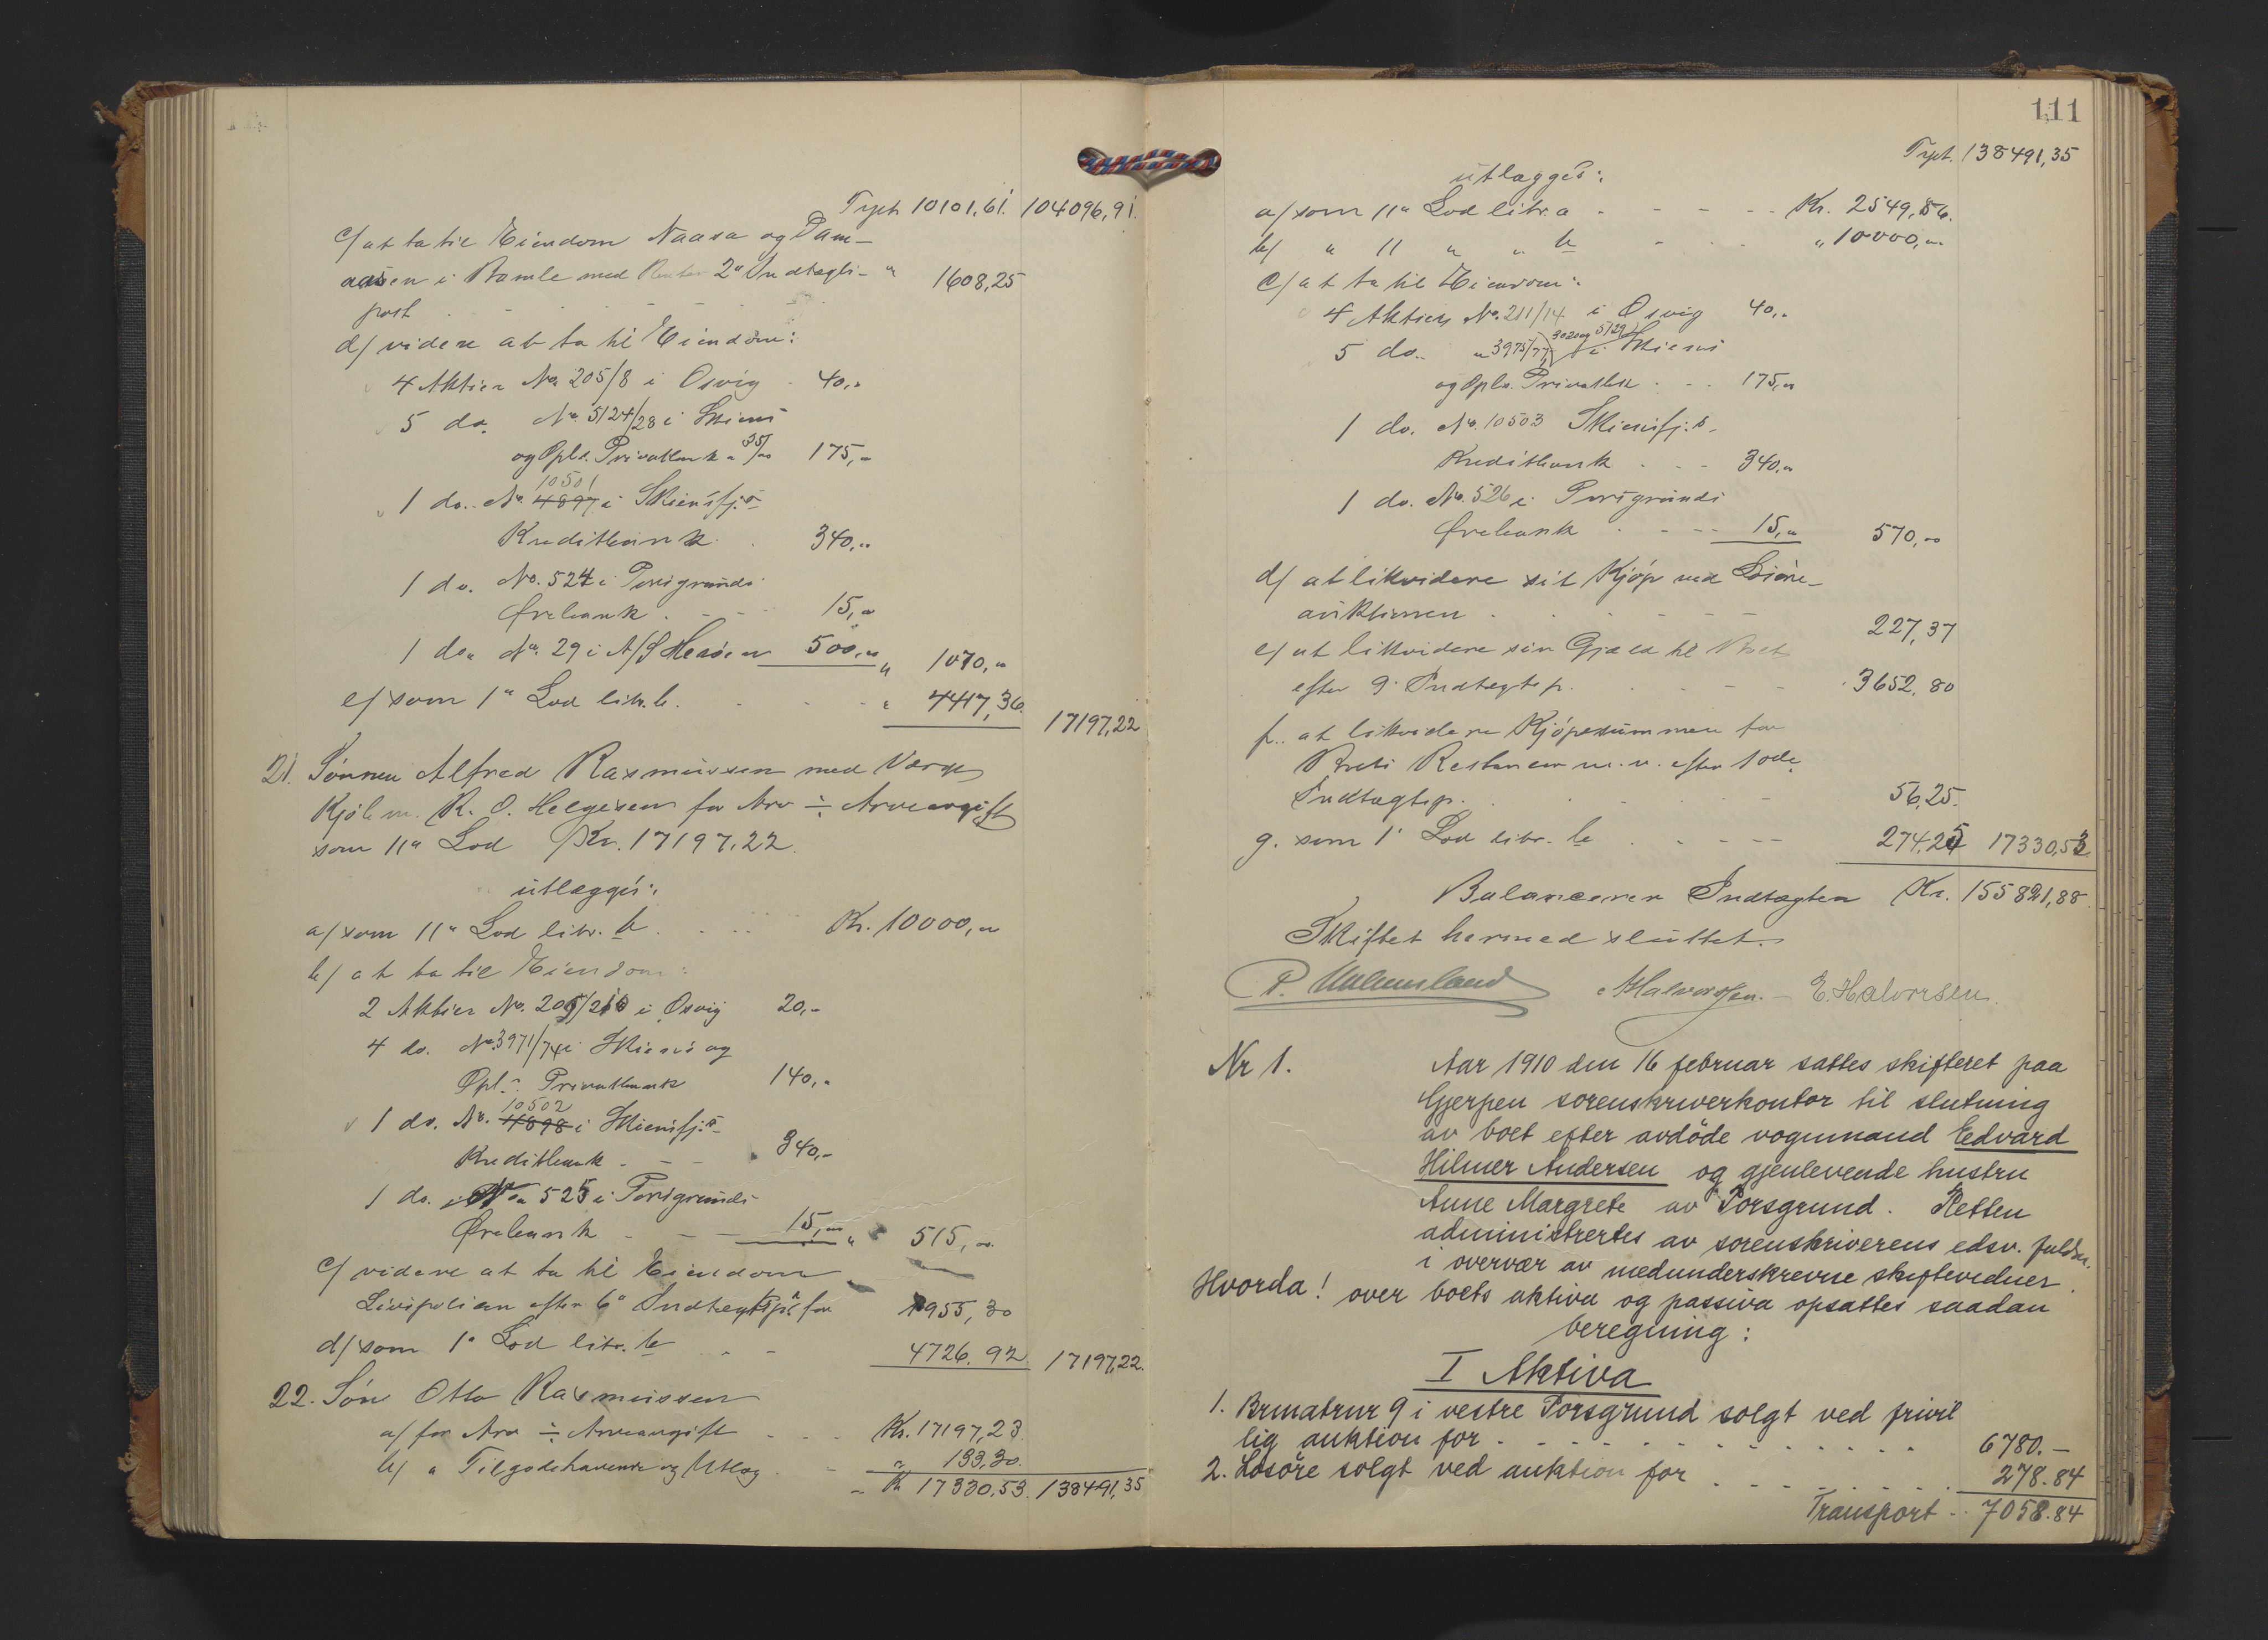 Trpt. 10101,61. 104096,91.
c/ at ta til Eiendom Naasa og Dam-
aasen i Bamle med 2" Indtægts- " 1608,25
post
d/ videre at ta til Eiendom:
4 Aktier No. 205/8 i Osvig 40,"
5 do. No. 5124/28 i Skiens
og Opls. Privatbank a 35/00 175,"
10501
1 do. No. 4897 i Skiensfj.s
Kreditbank 340,"
1 do. No. 524 i Porsgrunds
Ørebank 15,"
1 do. No. 29 i A/S Herøen 500,"
" 1070,"
e/ som 1" Lod litr. b. " 4417,36. 17197,22
21. Sønnen Alfred Rasmussen med Værge
Kjøbm. R. O. Helgesen for Arv ÷ Arveavgift
som 11" Lod Kr. 17197,22.
utlægges:
a/ som 11" Lod litr. b Kr. 10000,"
b/ at ta til Eiendom:
2 Aktier No. 209/210 i Osvig 20,"
4 do. No. 3971/74 i Skiens og
Opl.s Privatbank 140,"
10502
1 do. No. 4898 i Skiensfj.s
Kreditbank 340,"
1 do. No 525 i Porsgrunds
Ørebank 15,"" 515,"
c/ videre at ta til Eiendom
Livspolicen efter 6" Indtægtsp. for 1955,30
d/ som 1" Lod litr. b 4726.92. 17197,22.
22. Søn Otto Rasmussen
a/ for Arv ÷ Arveavgift Kr. 17197,23.
b/ " Tilgodehavende og Utlæg " 133,30.
Kr 17330,53. 138491,35
111
Trpt. 138491,35
utlægges:
a/ som 11" Lod litr. a Kr. 2549,86.
b/ " 11 " " b " 10000,"
c/ at ta til Eiendom:
4 Aktier No. 211/14 i Osvig 40,"
5 do. " 3975/77, 3020 og 5129 i Skiens
og Opls. Privatbk 175,"
1 do. No. 10503 Skiensfj.s
Kreditbank 340,"
1 do. No. 526 i Porsgrunds
Ørebank 15," 570,"
d/ at likvidere sit Kjøp ved Løsøre-
auktionen 227,37
e/ at likvidere sin Gjæld til Boet
efter 9. Indtægtsp. 3652,80
f. at likvidere Kjøpesummen for
Boets Restancer m.v. efter 10de
Indtægtsp. 56,25.
g. som 1" Lod litr. b 274,25 17330,53.
Balancerer Indtægten Kr. 155821,88.
Skiftet hermed sluttet.
Halvorsen. – E. Halvorsen.
Nr 1. Aar 1910 den 16 februar sattes skifteret paa
Gjerpen sorenskriverkontor til slutning
av boet efter avdöde vognmand Eedvard
Hilmer Andersen og gjenlevende hustru
Anne Margrete av Porsgrund. Retten
administrertes av sorenskriverens edsv. fuldm.
i overvær av medunderskrevne skiftevidner.
Hvorda! over boets aktiva og passiva opsattes saadan
beregning:
I Aktiva
1. Brmatrnr 9 i vestre Porsgrund solgt ved frivil
lig auktion for 6780.–
2. Losöre solgt ved auktion for 278.84
Transport 7058.84